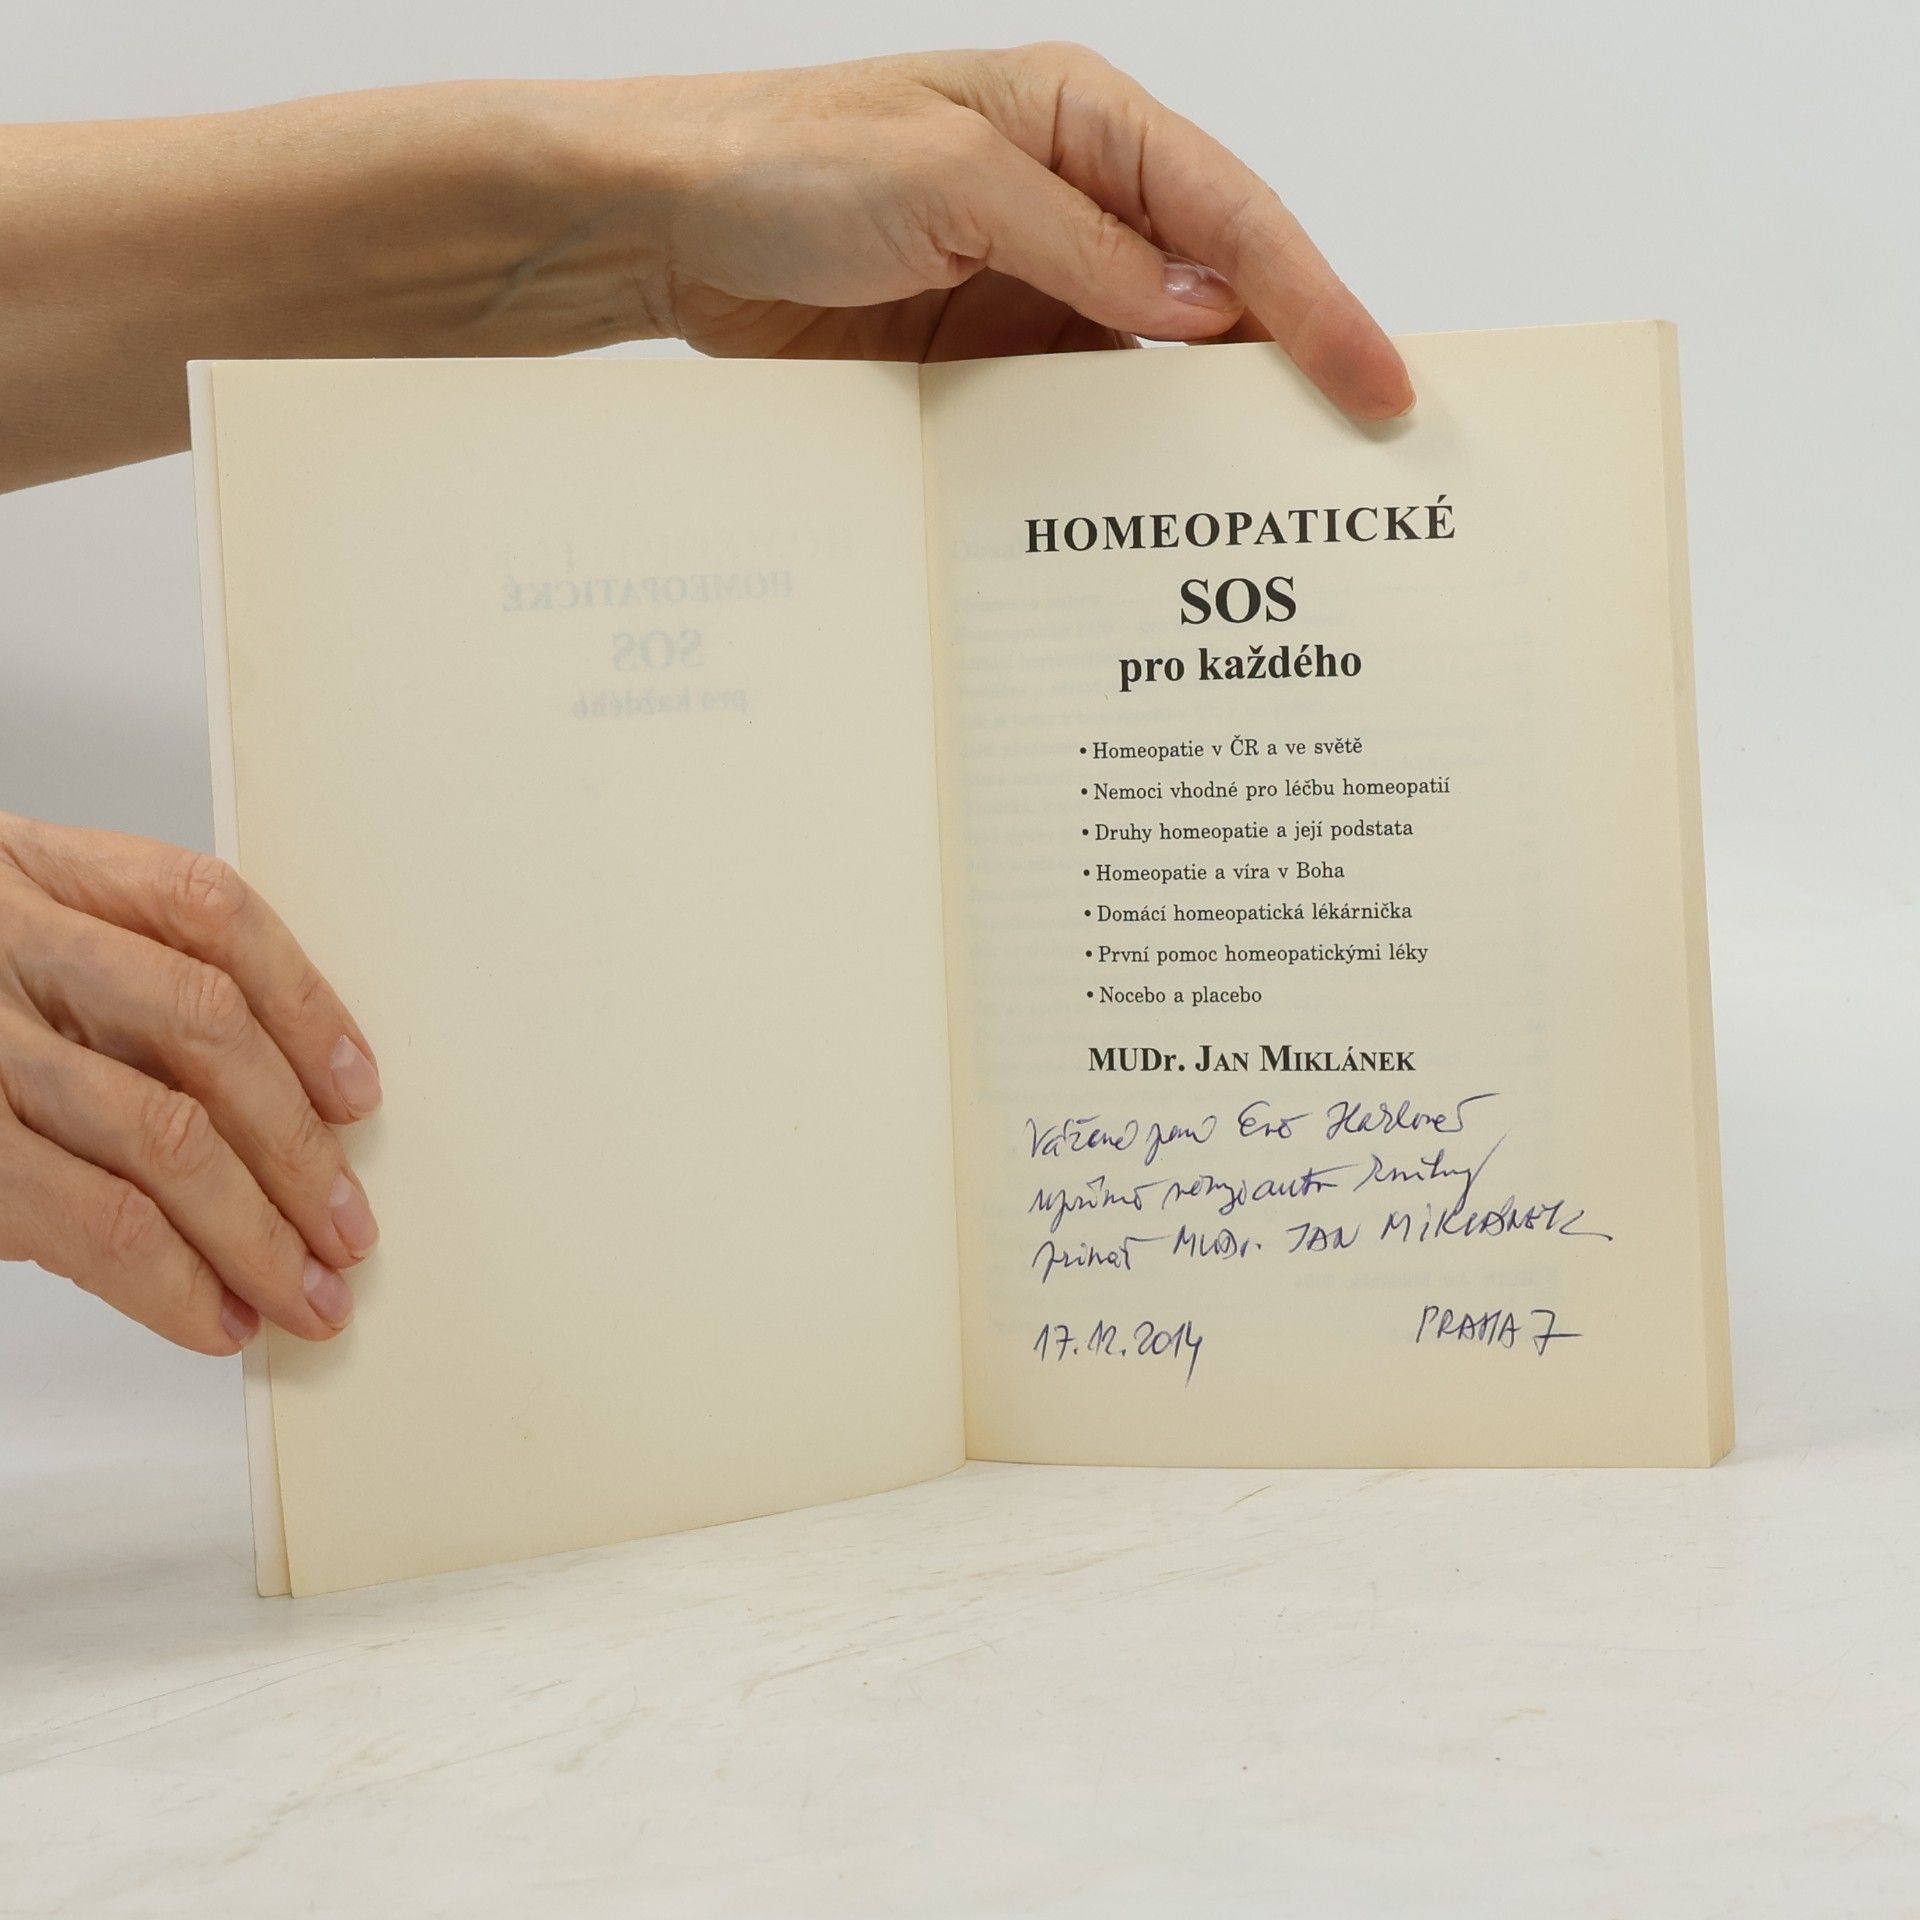 HOMEOPATICKÉ
SOS
pro každého
• Homeopatie v ČR a ve světě
• Nemoci vhodné pro léčbu homeopatií
• Druhy homeopatie a její podstata
• Homeopatie a víra v Boha
• Domácí homeopatická lékárnička
• První pomoc homeopatickými léky
• Nocebo a placebo
MUDr. JAN MIKLÁNEK
Vážené paní
knihy
primář MUDr. JAN MIKLÁNEK
17.12.2014 PRAHA 7